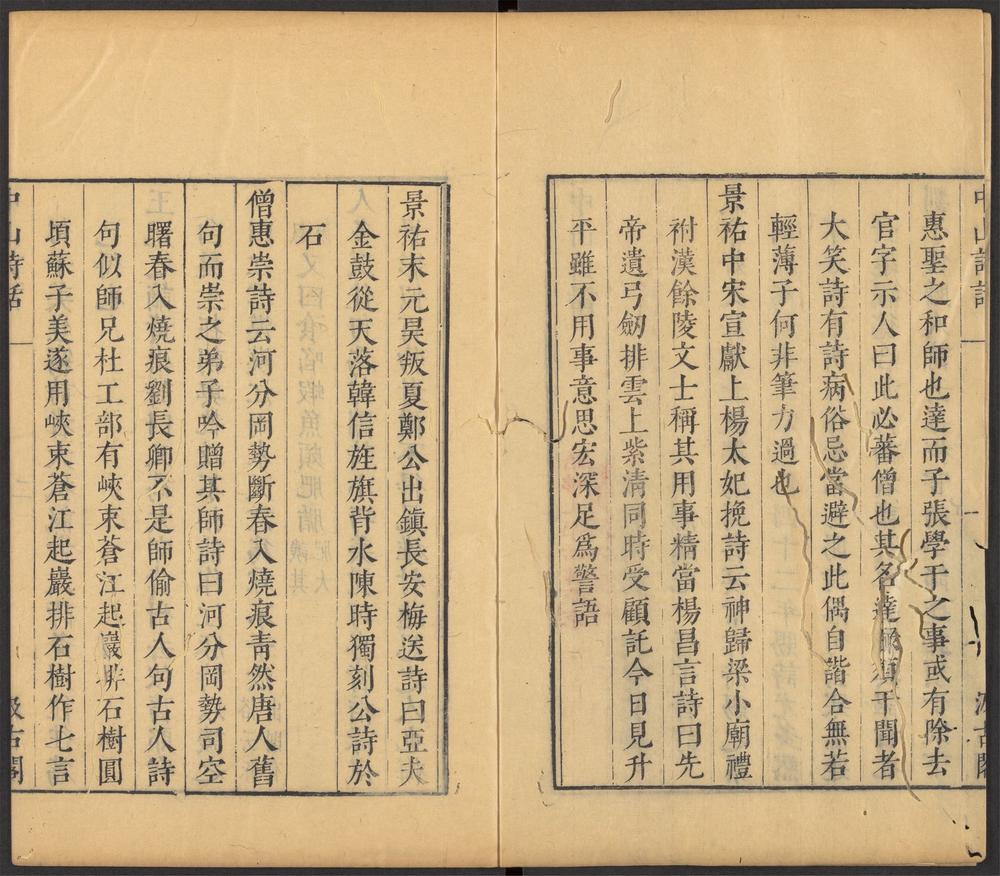 中山詩話
惠聖之和師也達而子張學于之事或有除去
官字示人曰此必蕃僧也其名達
干聞者
大笑詩有詩病俗忌當避之此偶自諧合無若
輕薄子何非筆力過也
景祐中宋宣獻上楊太妃挽詩云神歸梁小廟禮
祔漢餘陵文士稱其用事精當楊昌言詩曰先
帝遺弓劒排雲上紫清同時受顧託今日見升
平雖不用事意思宏深足爲警語
景祐末元昊叛夏鄭公出鎮長安梅送詩曰亞夫
金鼓從天落韓信旌旗背水陳時獨刻公詩於
石
僧惠崇詩云河分岡勢斷春入燒痕靑然唐人舊
句而崇之弟子吟贈其師詩曰河分岡勢司空
曙春入燒痕劉長卿不是師偷古人句古人詩
句似師兄杜工部有峽束蒼江起巖排石樹圓
頃蘇子美遂用峽束蒼江起巖排石樹作七言
中山詩話
汲古閣